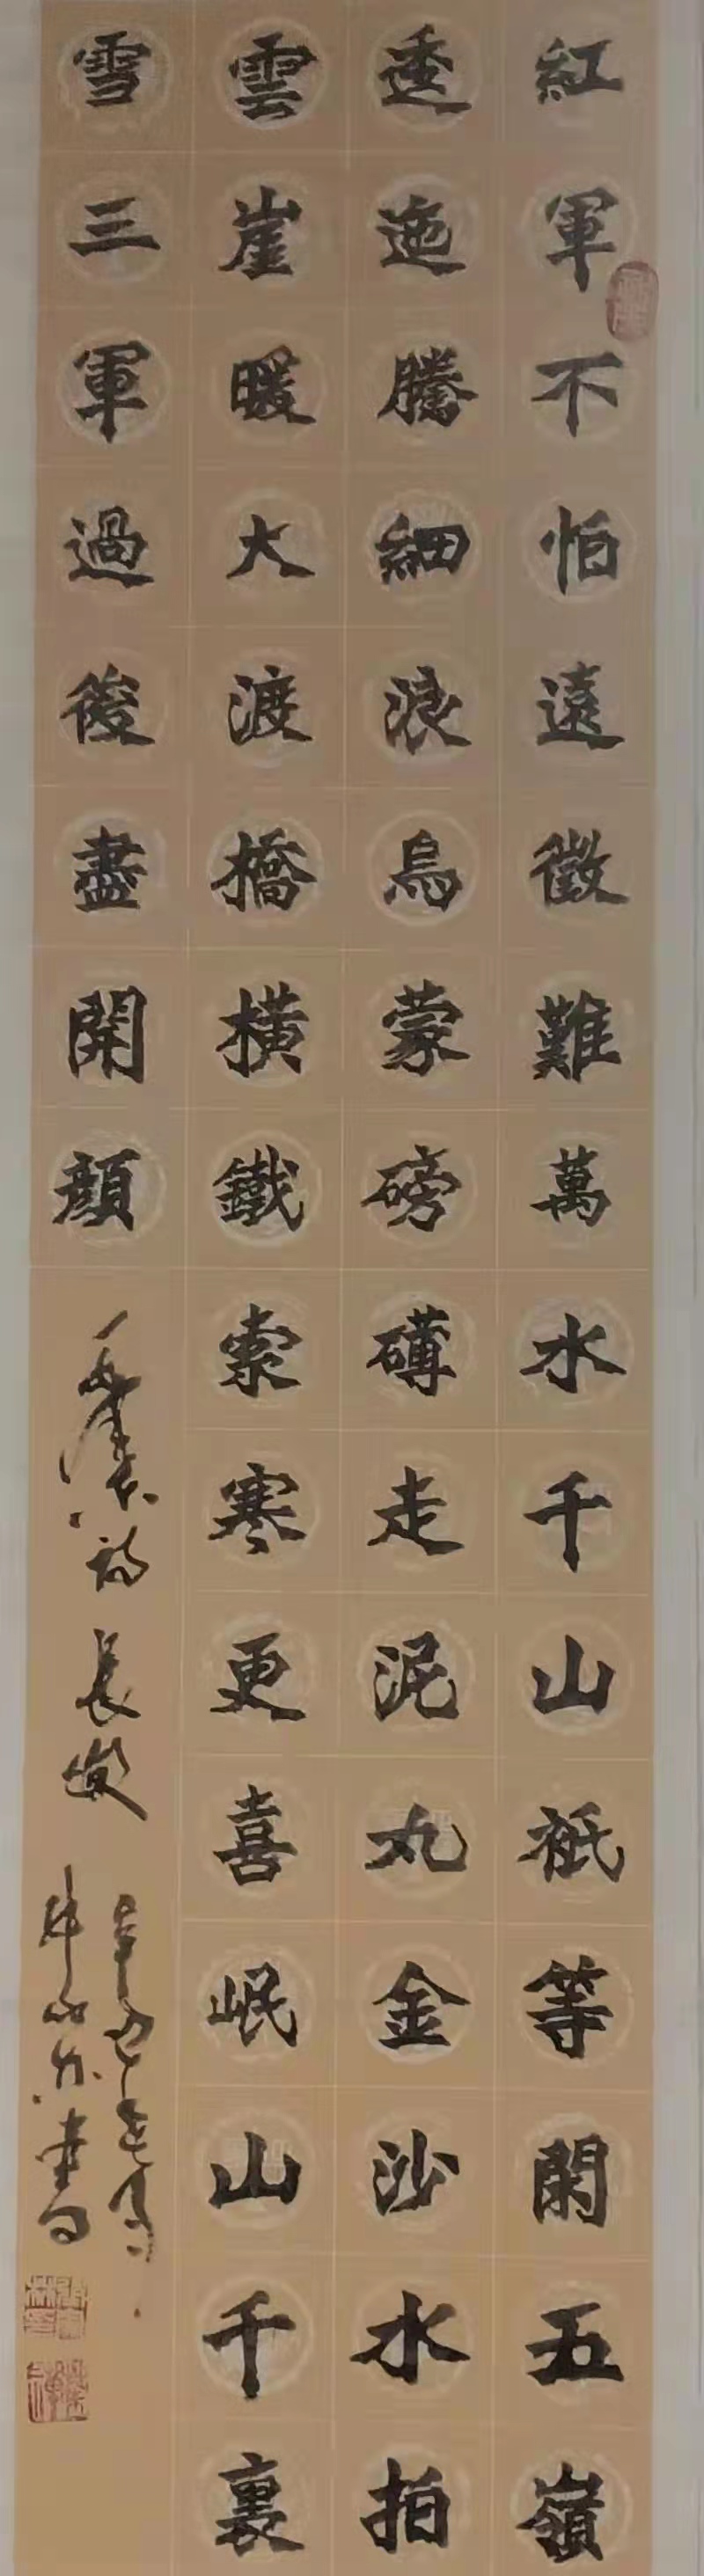 紅軍不怕遠徵難萬水千山祇等閑五嶺
逶迤騰細浪烏蒙磅礴走泥丸金沙水拍
雲崖暖大渡橋橫鐵索寒更喜岷山千裏
雪三軍過後盡開顏
毛澤東詩 長徵